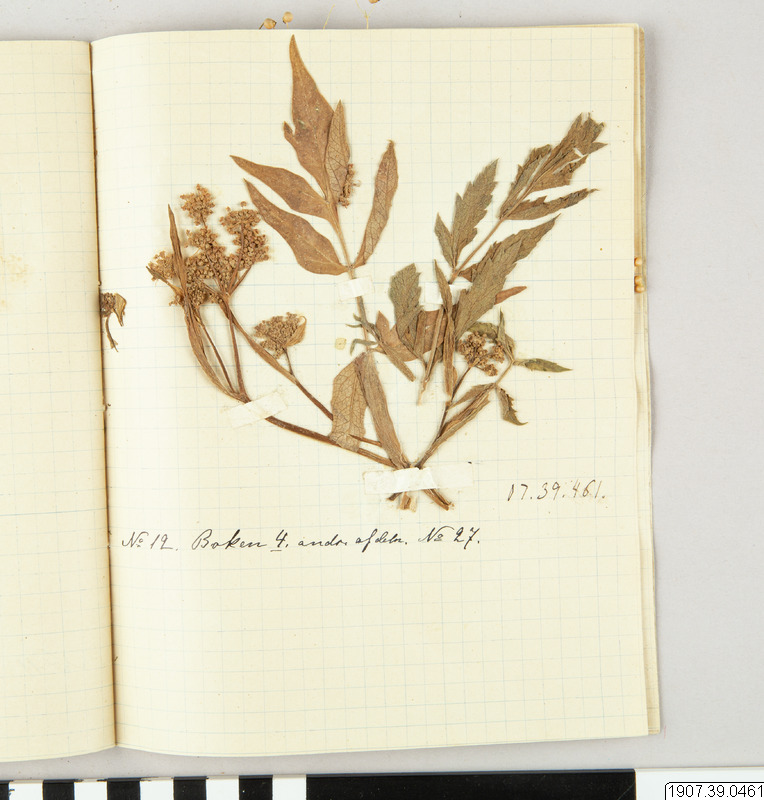 07.39.461.
No 12. Boken 4. andr. afdeln. No 27.
1907.39.0461